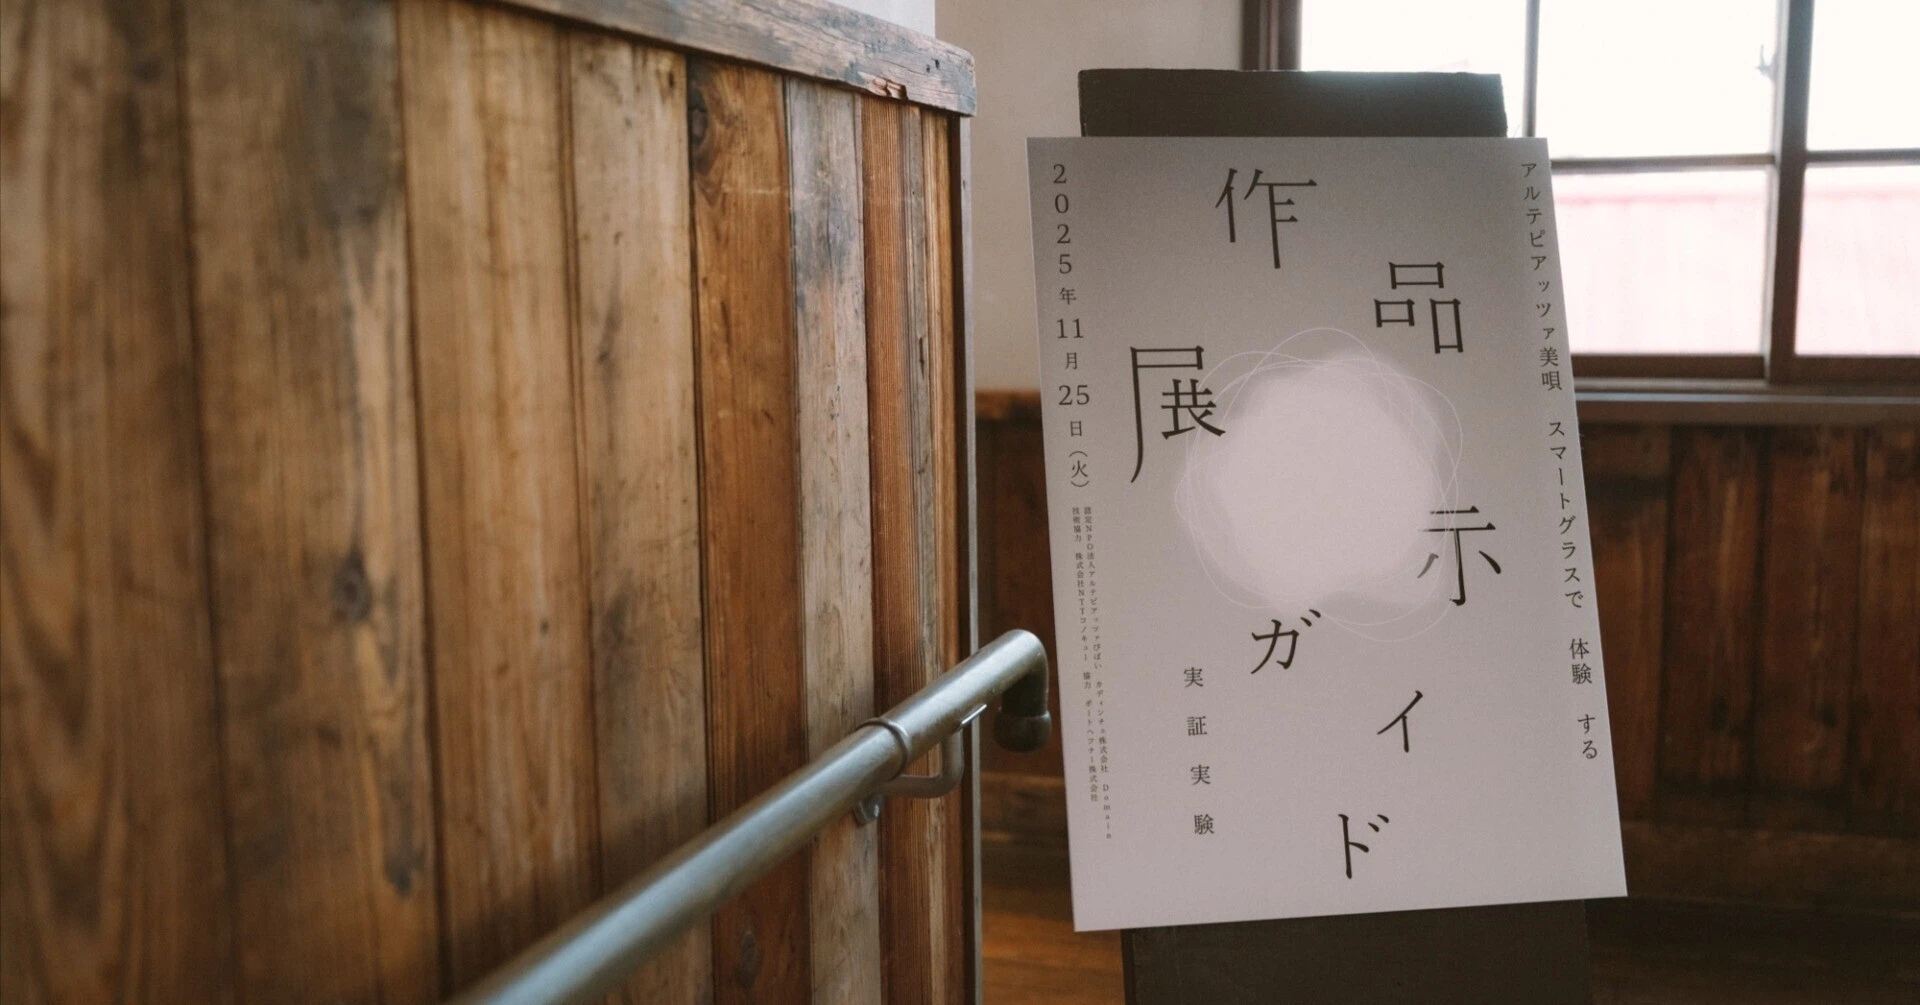 アルテピアッツァ美唄 スマートグラスで 体験 する
作品展示ガイド
実証実験
2025年11月25日(火)
認定NPO法人アルテピアッツァびばい カディンチェ株式会社 Domain
技術協力 株式会社NTTコノキュー 協力 ゲートヘフナー株式会社